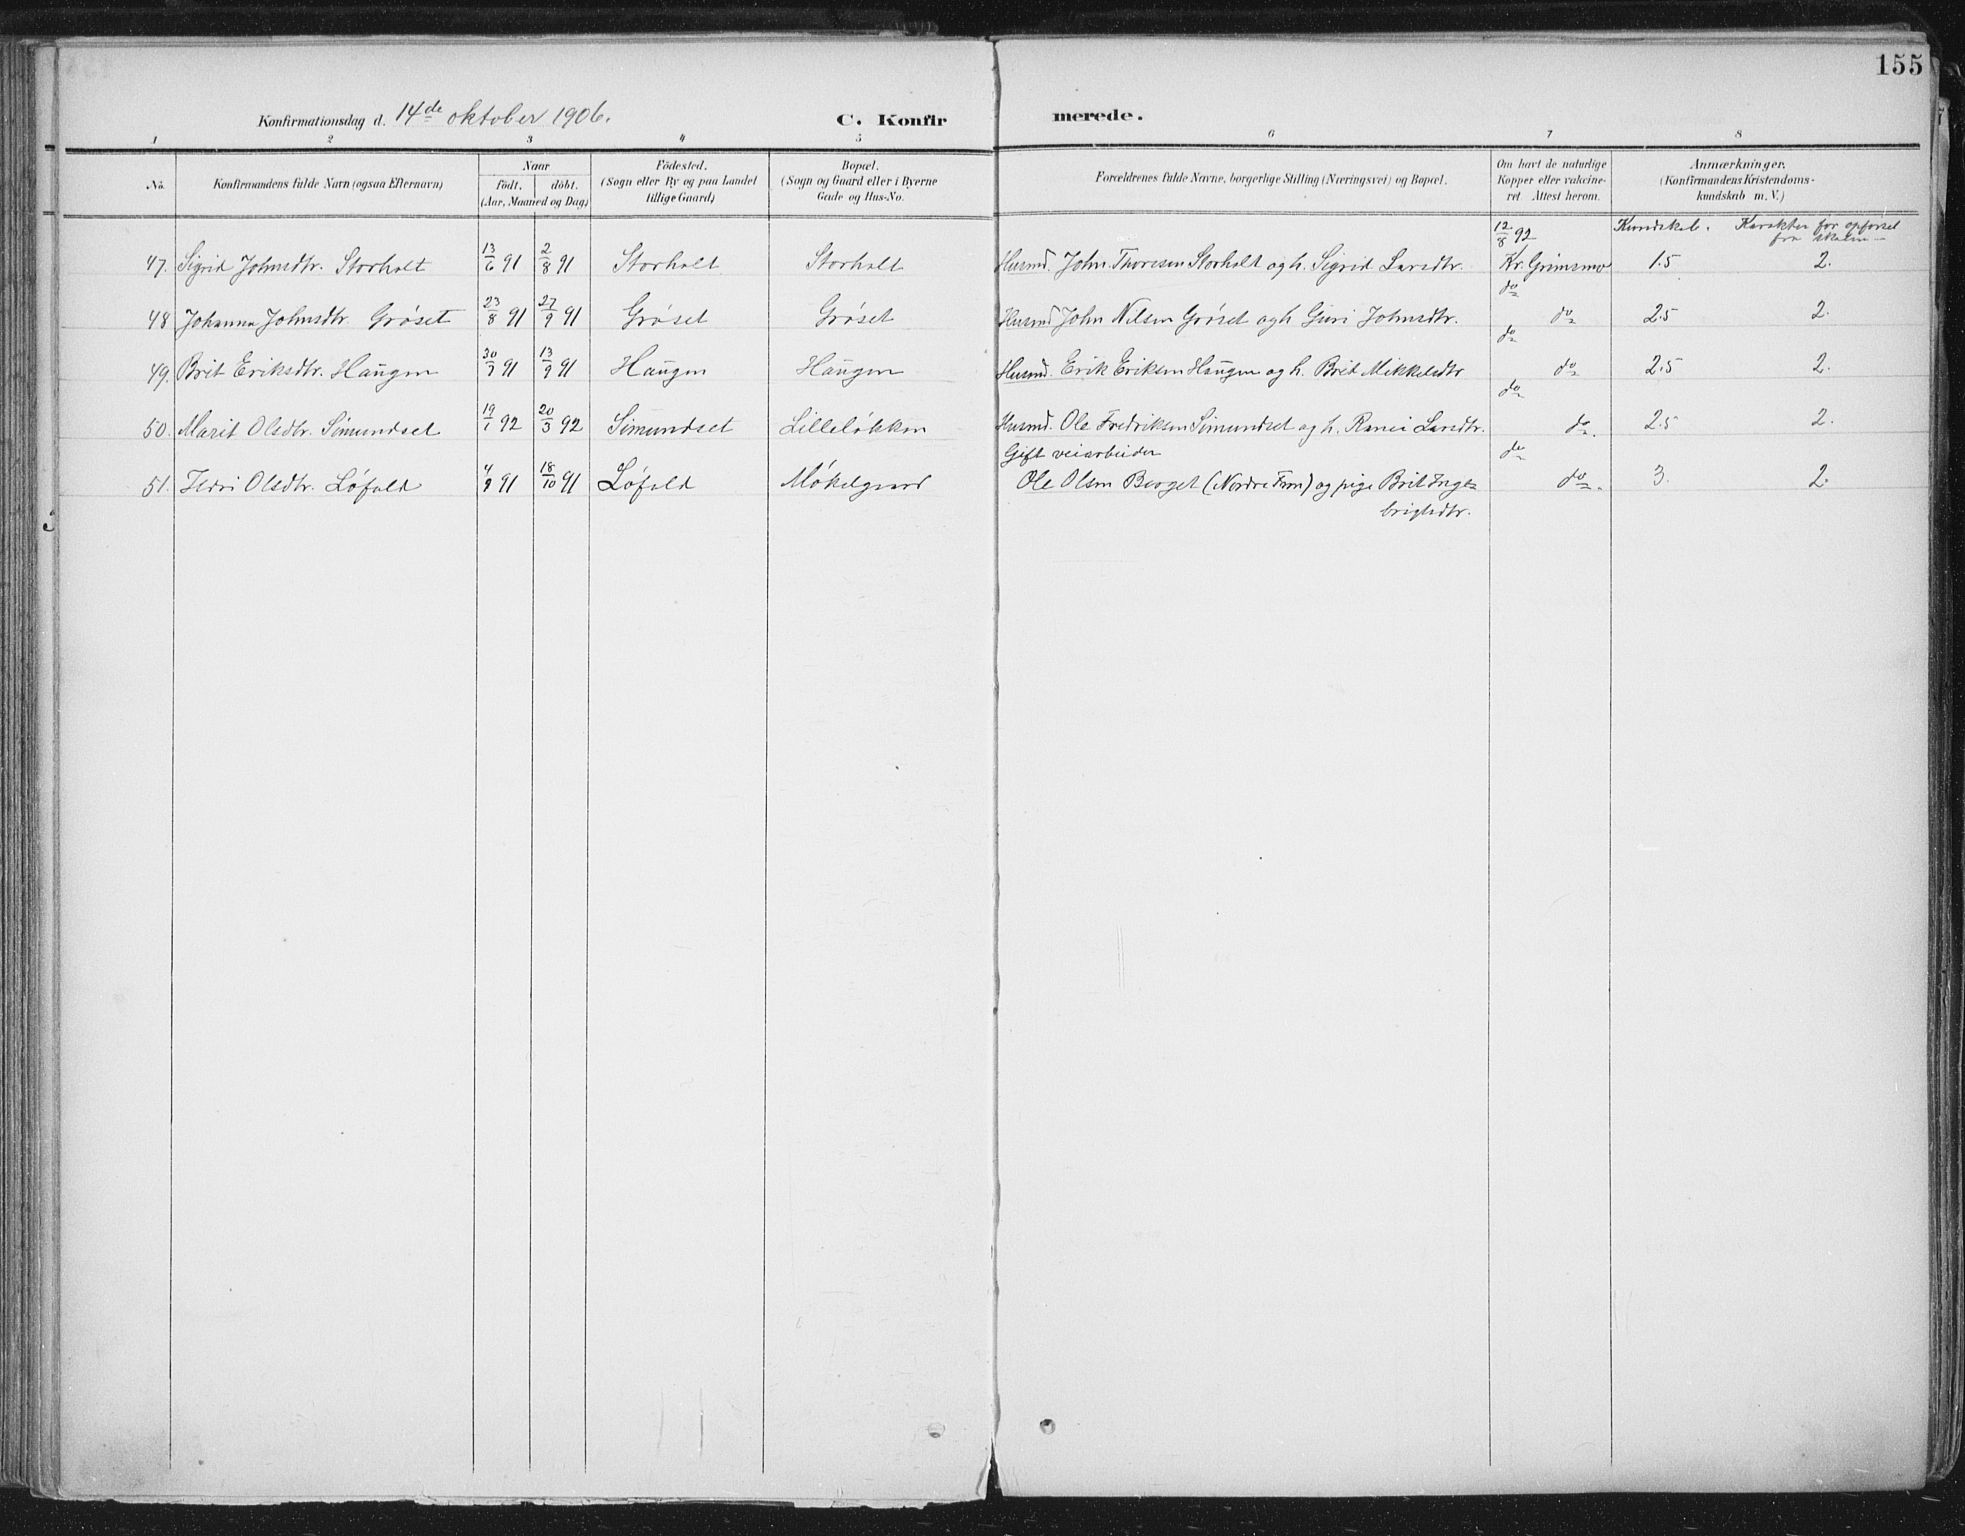 155
Konfirmationsdag d. 14de oktober 1906. C. Konfir merede.
1 2 3 4 5 6 7 8
No. Konfirmandens fulde Navn (ogsaa Efternavn) Naar födt. döbt. (Aar, Maaned og Dag) Födested. (Sogn eller By og paa Landet tillige Gaard) Bopæl. (Sogn og Gaard eller i Byerne Gade og Hus-No. Forældrenes fulde Navne, borgerlige Stilling (Næringsvei) og Bopæl. Om havt de naturlige Kopper eller vakcineret. Attest herom. Anmærkninger. (Konfirmandens Kristendomskundskab m. V.)
12/8 92 Kundskab. Karakter for opførsel fra skolen
47. Sigrid Johnsdtr. Storholt 13/6 91 2/8 91 Storholt Storholt Husmd. John Thoresen Storholt og h. Sigrid Larsdtr. Kr. Grimsmo 1.5 2.
do
48 Johanna Johnsdtr. Grøset 23/8 91 27/9 91 Grøset Grøset Husmd John Nilsen Grøset og h. Guri Johnsdtr. do 2.5 2.
do
49. Brit Eriksdtr. Haugen 30/7 91 13/9 91 Haugen Haugen Husmd. Erik Eriksen Haugen og h. Brit Mikkelsdtr do 2.5 2.
do
50. Marit Olsdtr. Simundset 19/1 92 20/3 92 Simundset Lilleløkken Husmd. Ole Fredriksen Simundset og h. Larsdtr. do. 2.5 2.
Gift veiarbeider do
51. Olsdtr. Løfald 4/9 91 18/10 91 Løfald Møkelgaard Ole Olsen (Nordre) og pige Brit Inge- do. 3. 2.
brigtsdtr.